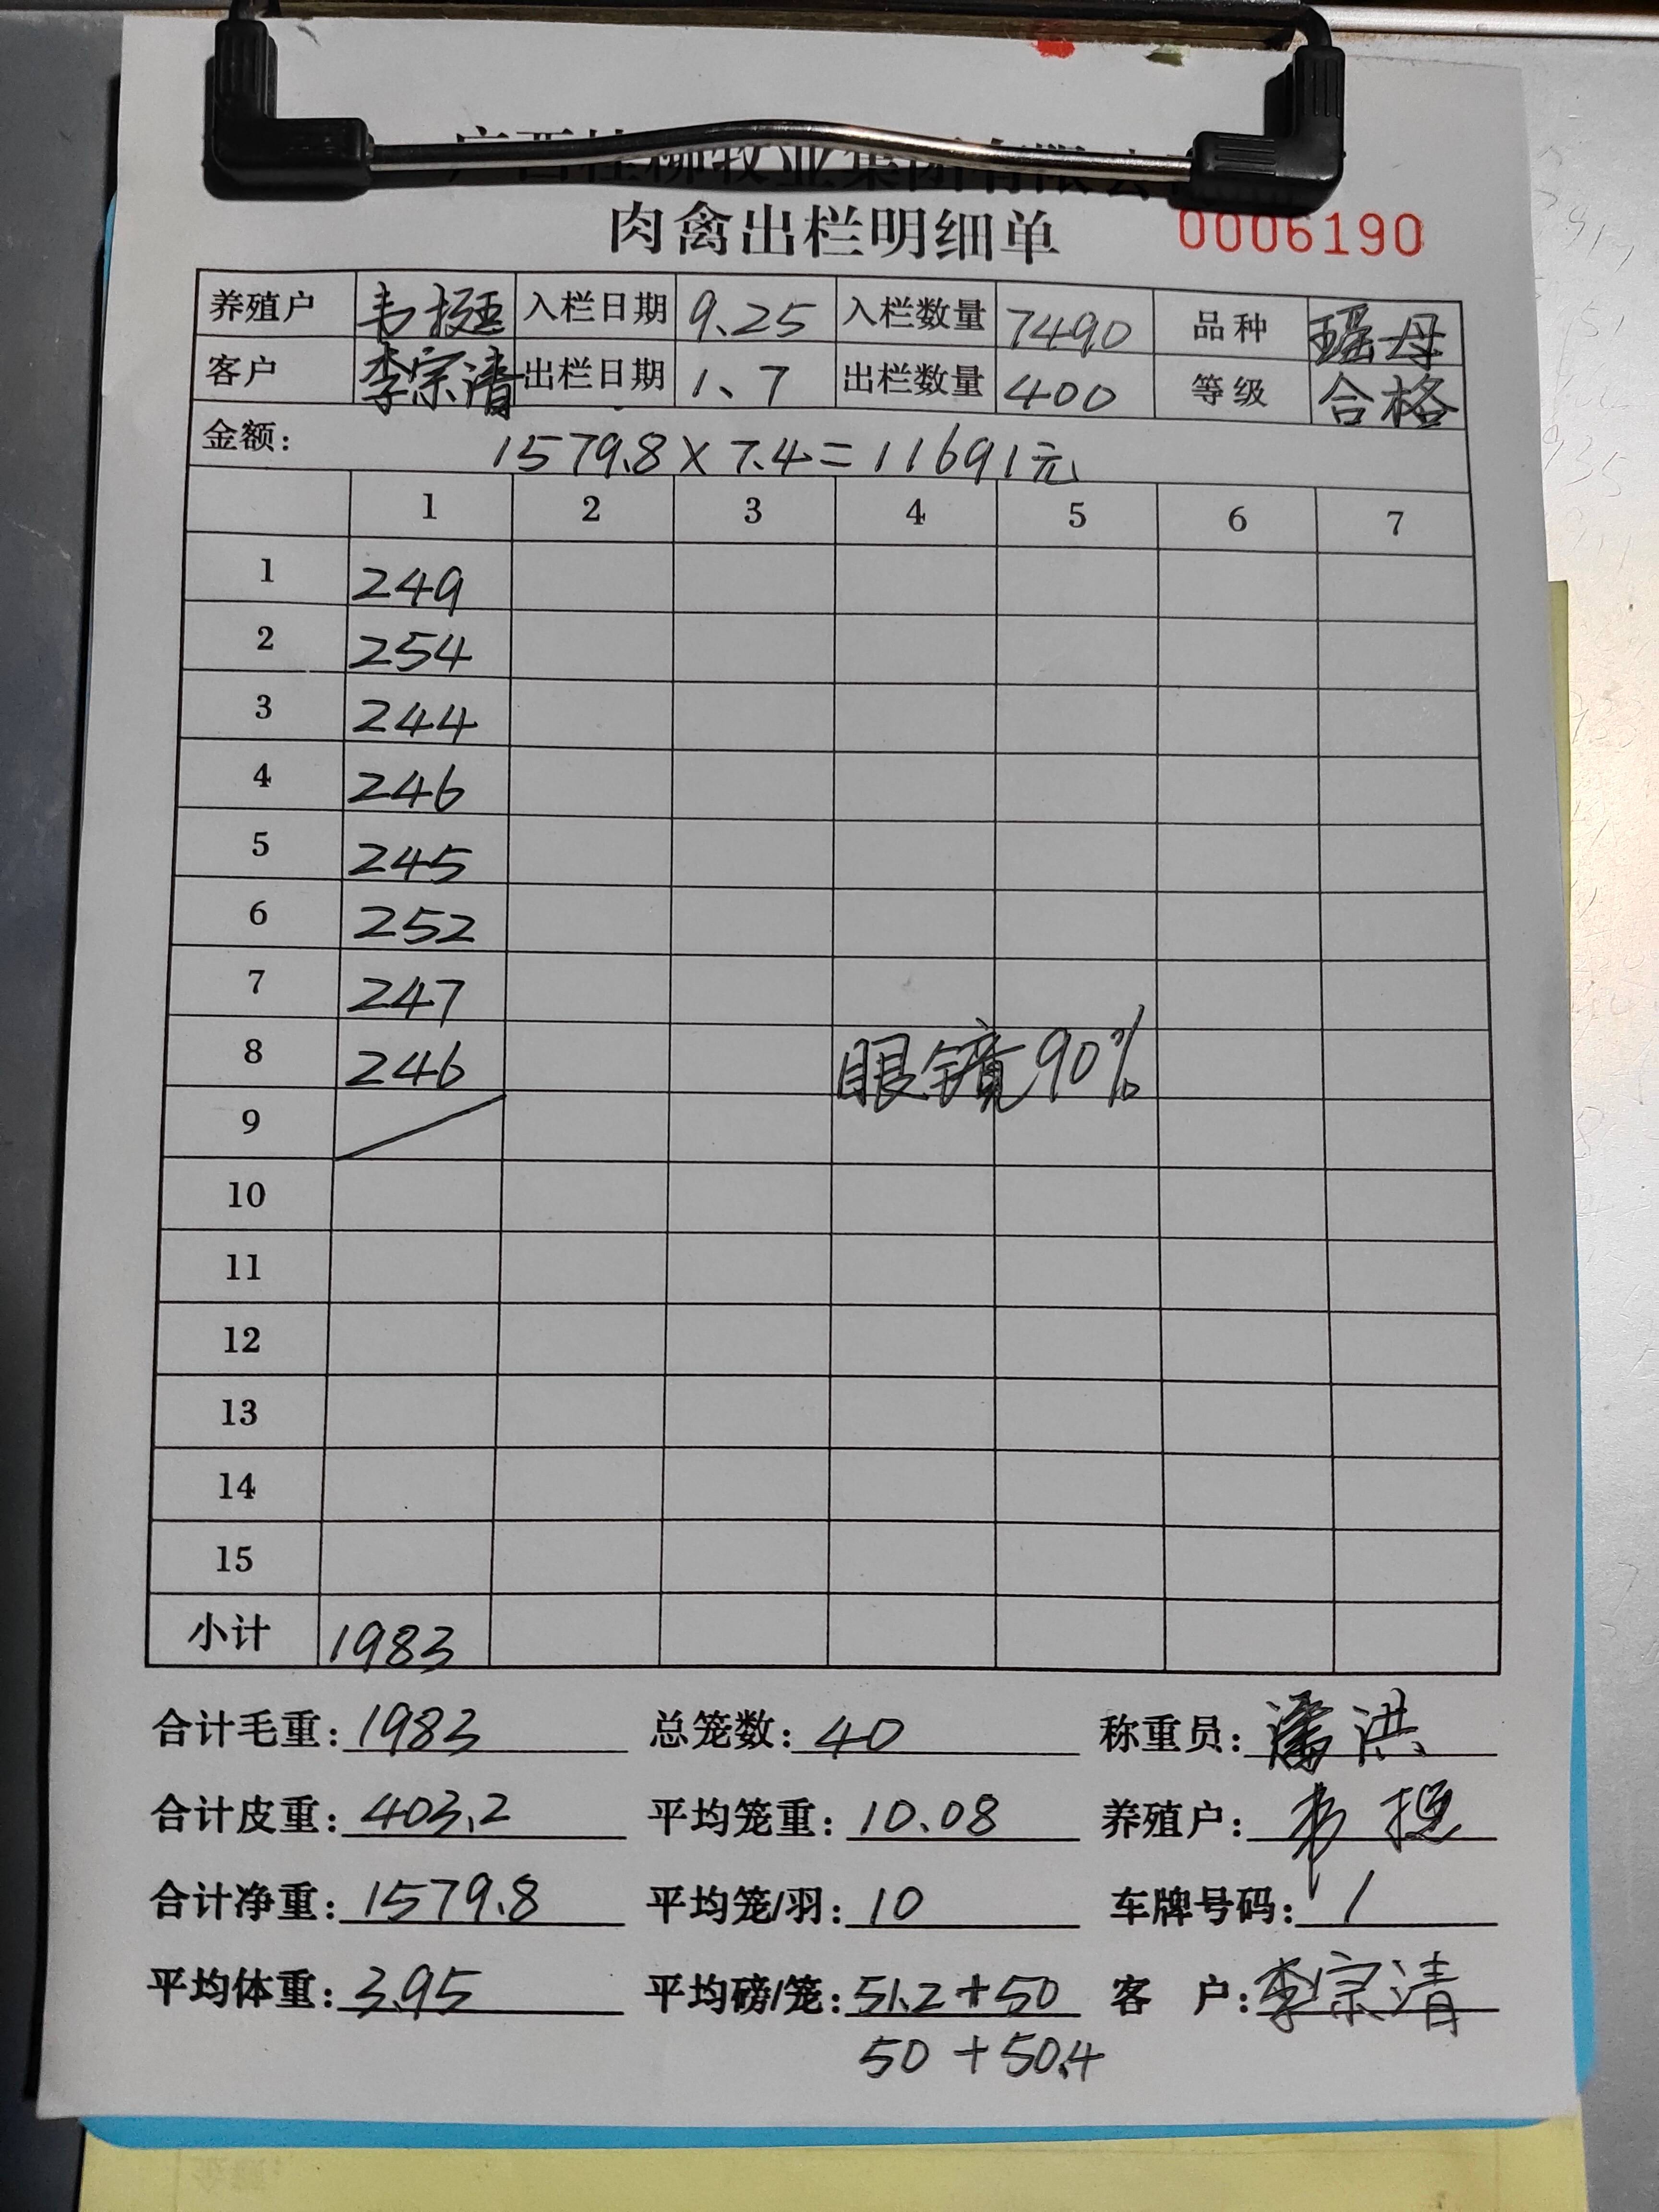 肉禽出栏明细单 0006190
养殖户 韦 入栏日期 9.25 入栏数量 7490 品种 瑶母
客户 李宗清 出栏日期 1、7 出栏数量 400 等级 合格
金额: 1579.8×7.4=11691元
1 2 3 4 5 6 7
1 249
2 254
3 244
4 246
5 245
6 252
7 247
8 246 眼镜90%
9
10
11
12
13
14
15
小计 1983
合计毛重: 1983 总笼数: 40 称重员: 潘洪
合计皮重: 403.2 平均笼重: 10.08 养殖户: 韦
合计净重: 1579.8 平均笼/羽: 10 车牌号码: 1
平均体重: 3.95 平均磅/笼: 51.2+50 客 户: 李宗清
50+50.4